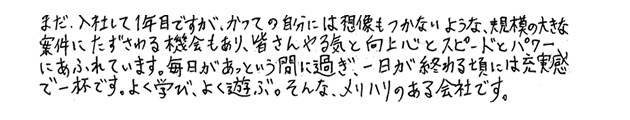 まだ、入社して1年目ですが、かつての自分には想像もつかないような、規模の大きな
案件にたずさわる機会もあり、皆さんやる気と向上心とスピードとパワー
にあふれています。毎日があっという間に過ぎ、一日が終わる頃には充実感
で一杯です。よく学び、よく遊ぶ。そんな、メリハリのある会社です。